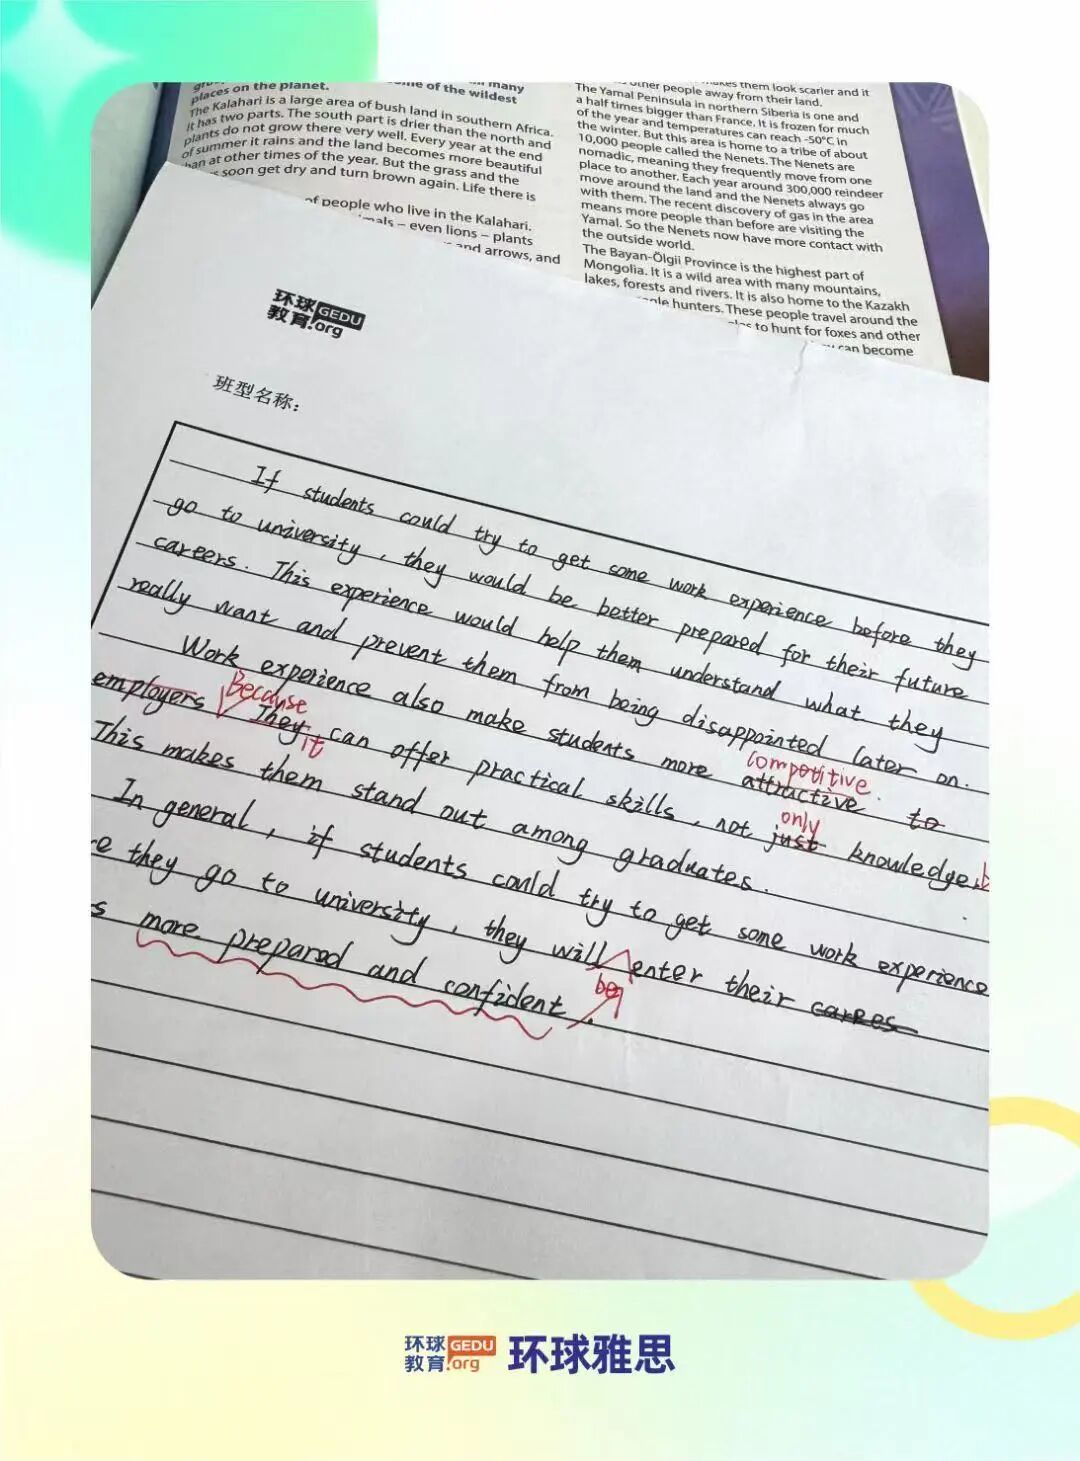 places on the planet.
of the wildest
many
The Kalahari is a large area of bush land in southern Africa.
It has two parts. The south part is drier than the north and
plants do not grow there very well. Every year at the end
of summer it rains and the land becomes more beautiful
at other times of the year. But the grass and the
soon get dry and turn brown again. Life there is
of people who live in the Kalahari.
– even lions – plants
and arrows, and
other people makes them look scarier and it
away from their land.
The Yamal Peninsula in northern Siberia is one and
a half times bigger than France. It is frozen for much
of the year and temperatures can reach -50°C in
the winter. But this area is home to a tribe of about
10,000 people called the Nenets. The Nenets are
nomadic, meaning they frequently move from one
place to another. Each year around 300,000 reindeer
move around the land and the Nenets always go
with them. The recent discovery of gas in the area
means more people than before are visiting the
Yamal. So the Nenets now have more contact with
the outside world.
The Bayan-Ölgii Province is the highest part of
Mongolia. It is a wild area with many mountains,
lakes, forests and rivers. It is also home to the Kazakh
hunters. These people travel around the
to hunt for foxes and other
can become
环球 GEDU
教育.org
班型名称:
If students could try to get some work experience before they
go to university, they would be better prepared for their future
careers. This experience would help them understand what they
really want and prevent them from being disappointed later on.
Work experience also make students more attractive to
competitive
employers. They can offer practical skills, not just knowledge.
Because
it
only
This makes them stand out among graduates.
In general, if students could try to get some work experience
they go to university, they will enter their carees
be
more prepared and confident.
环球 GEDU
教育.org
环球雅思